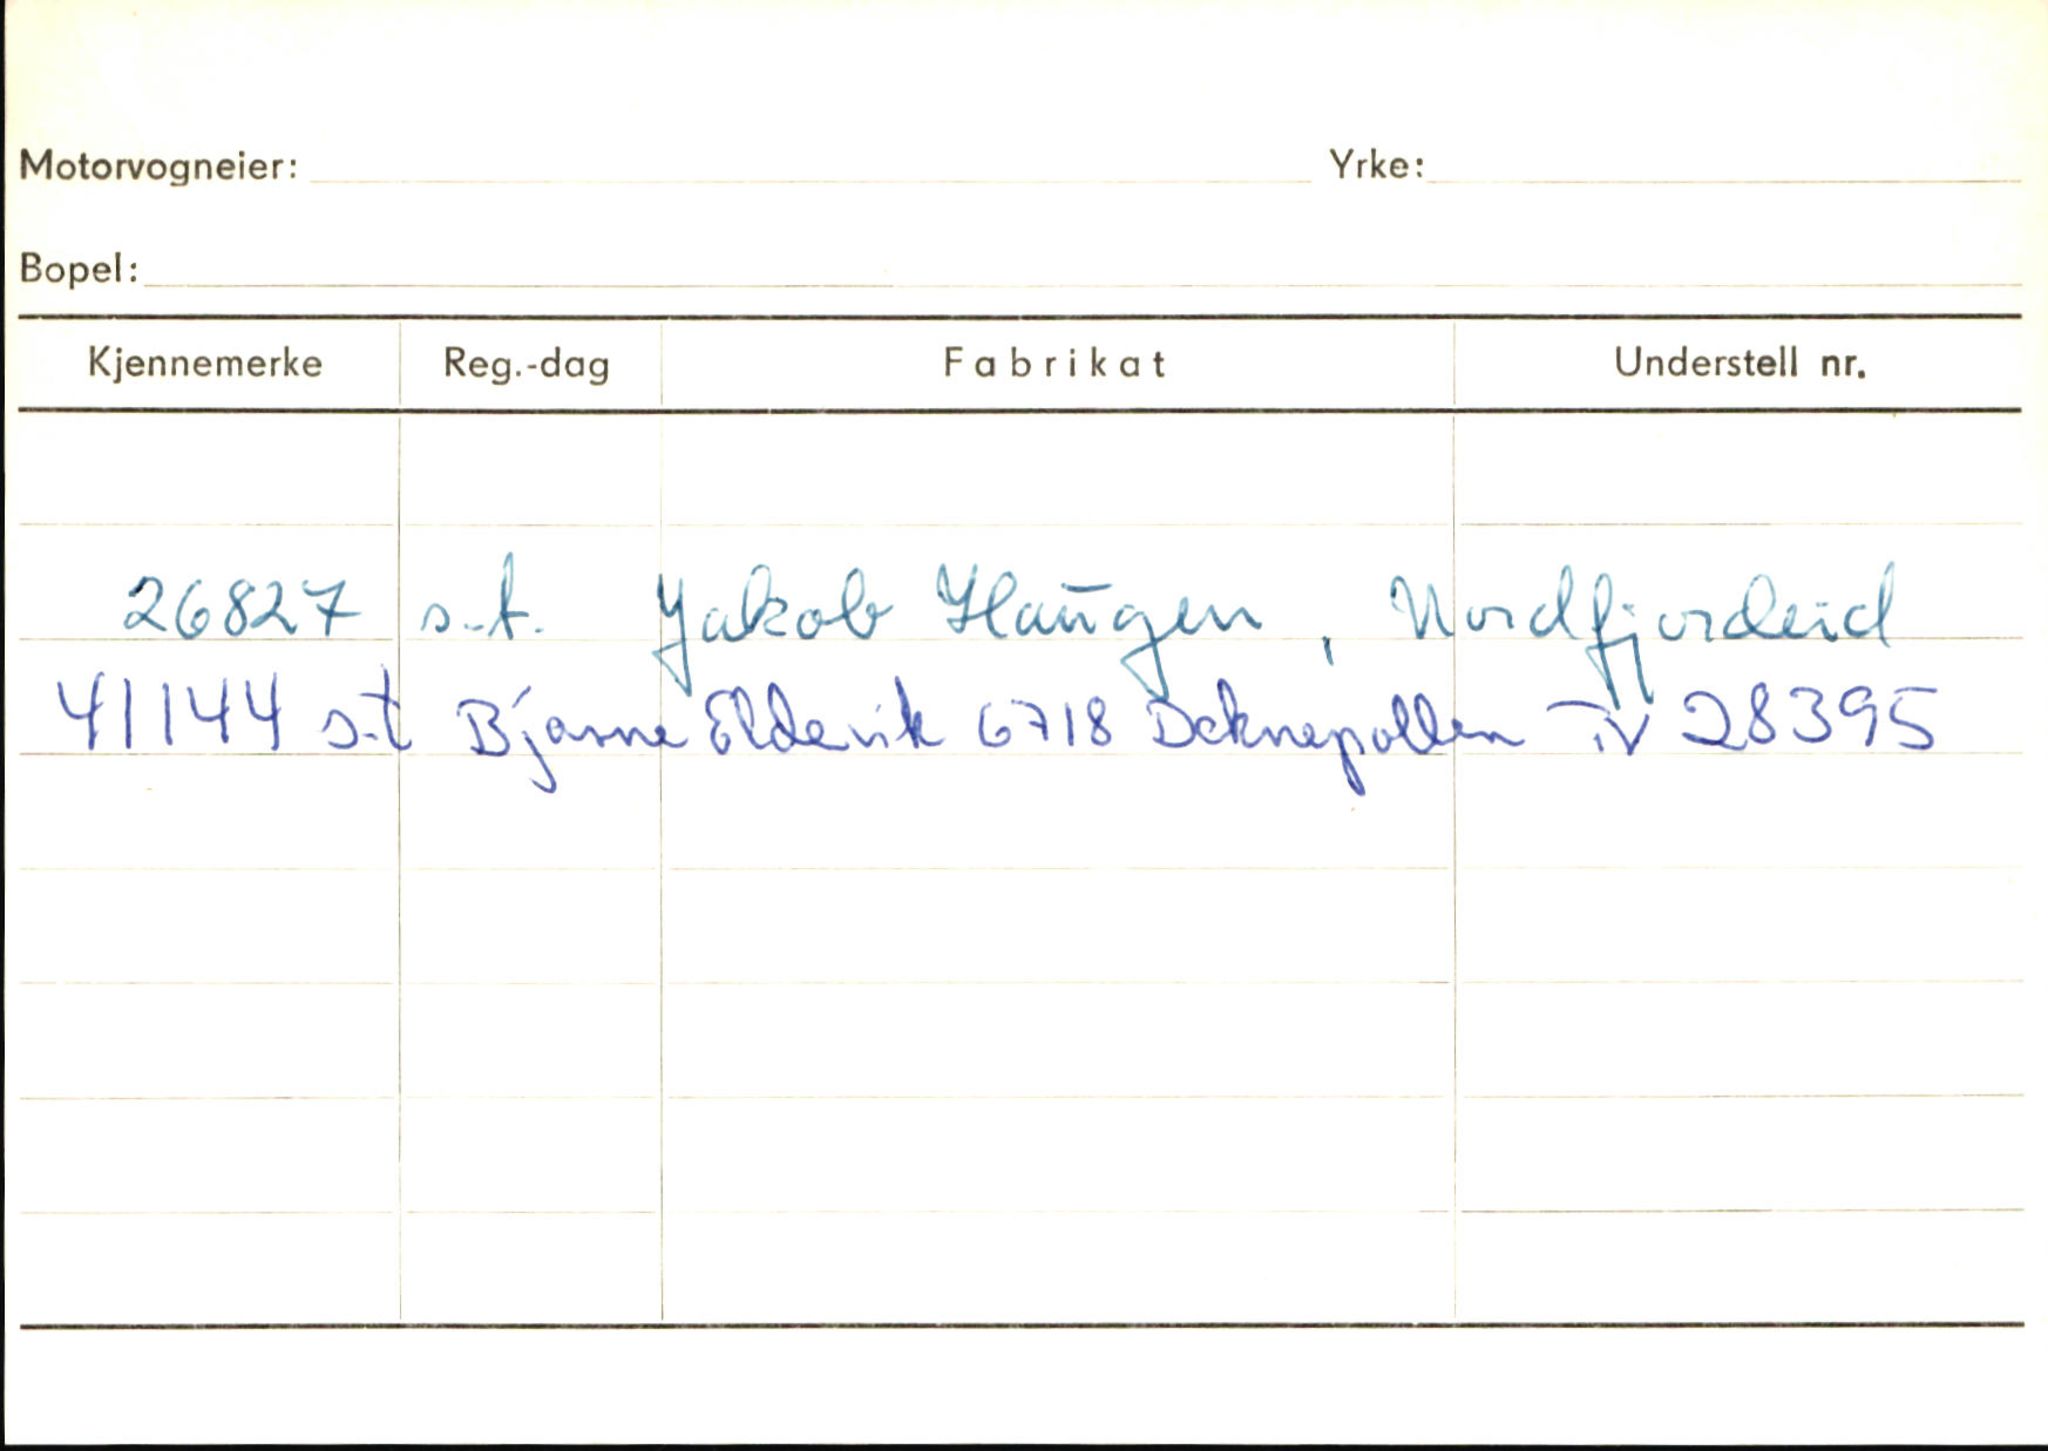 Motorvogneier: Yrke:
Bopel:
Kjennemerke Reg.-dag Fabrikat Understell nr.
26827 s.t. Jakob Haugen, Nordfjordeid
41144 s.t Bjarne Eldevik 6718 Deknepollen TV 28395